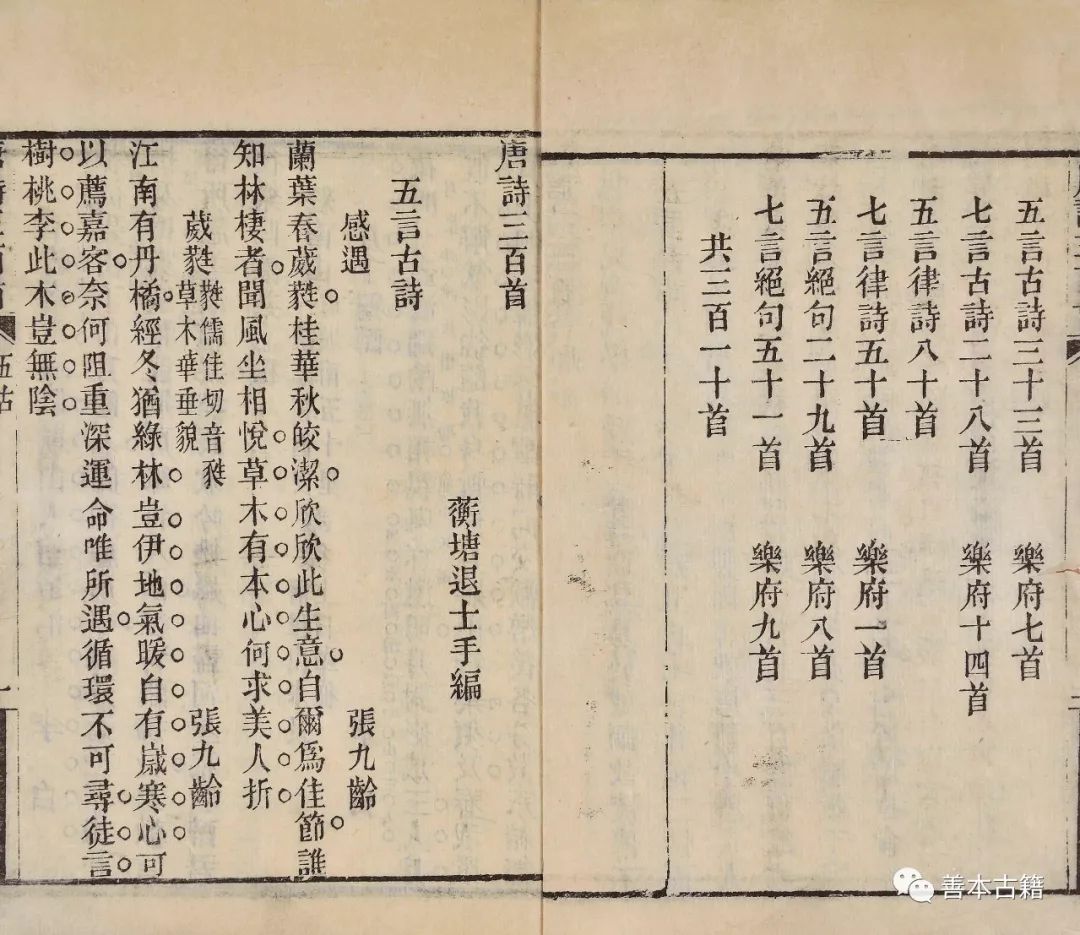 五言古詩三十三首 樂府七首
七言古詩二十八首 樂府十四首
五言律詩八十首
七言律詩五十首 樂府一首
五言絕句二十九首 樂府八首
七言絕句五十一首 樂府九首
共三百一十首
唐詩三百首
蘅塘退士手編
五言古詩
感遇 張九齡
蘭葉春葳蕤桂華秋皎潔欣欣此生意自爾爲佳節誰
知林棲者聞風坐相悅草木有本心何求美人折
葳蕤 蕤儒佳切音甤 草木華垂貌 張九齡
江南有丹橘經冬猶綠林豈伊地氣暖自有歲寒心可
以薦嘉客奈何阻重深運命唯所遇循環不可尋徒言
樹桃李此木豈無陰
善本古籍